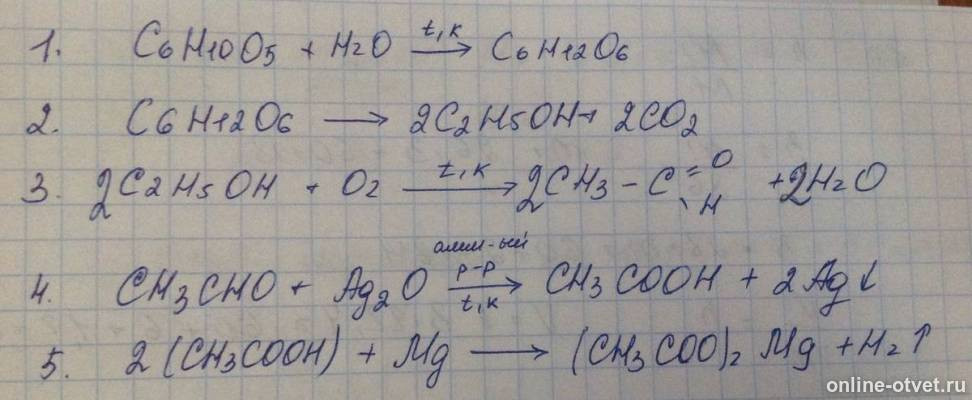 1. C6H10O5 + H2O t,к → C6H12O6
2. C6H12O6 → 2C2H5OH + 2CO2
3. 2C2H5OH + O2 t,к → 2CH3 - C =O \H + 2H2O
4. CH3CHO + Ag2O аммм-ый р-р → t,к CH3COOH + 2Ag↓
5. 2(CH3COOH) + Mg → (CH3COO)2 Mg + H2↑
online-otvet.ru